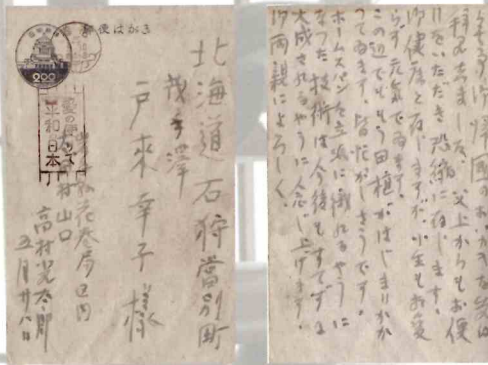 郵便はがき
200
愛の運動
平和日本
北海道石狩當別町
茂平澤
戸來幸子様
岩手縣花巻局區内
村山口
高村光太郎
五月廿八日
拜見しました、父上からもお便
りをいただき恐縮に存じます。
御健康と存じますが小生も相変
らず元気でゐます。
この辺でももう田植がはじまりかか
つてゐます、皆忙がしさうです。
ホームスパンを立派に織れるやうに
なつた技術は今後もすてずに
大成されるやうに念じ上げます。
御両親によろしく、